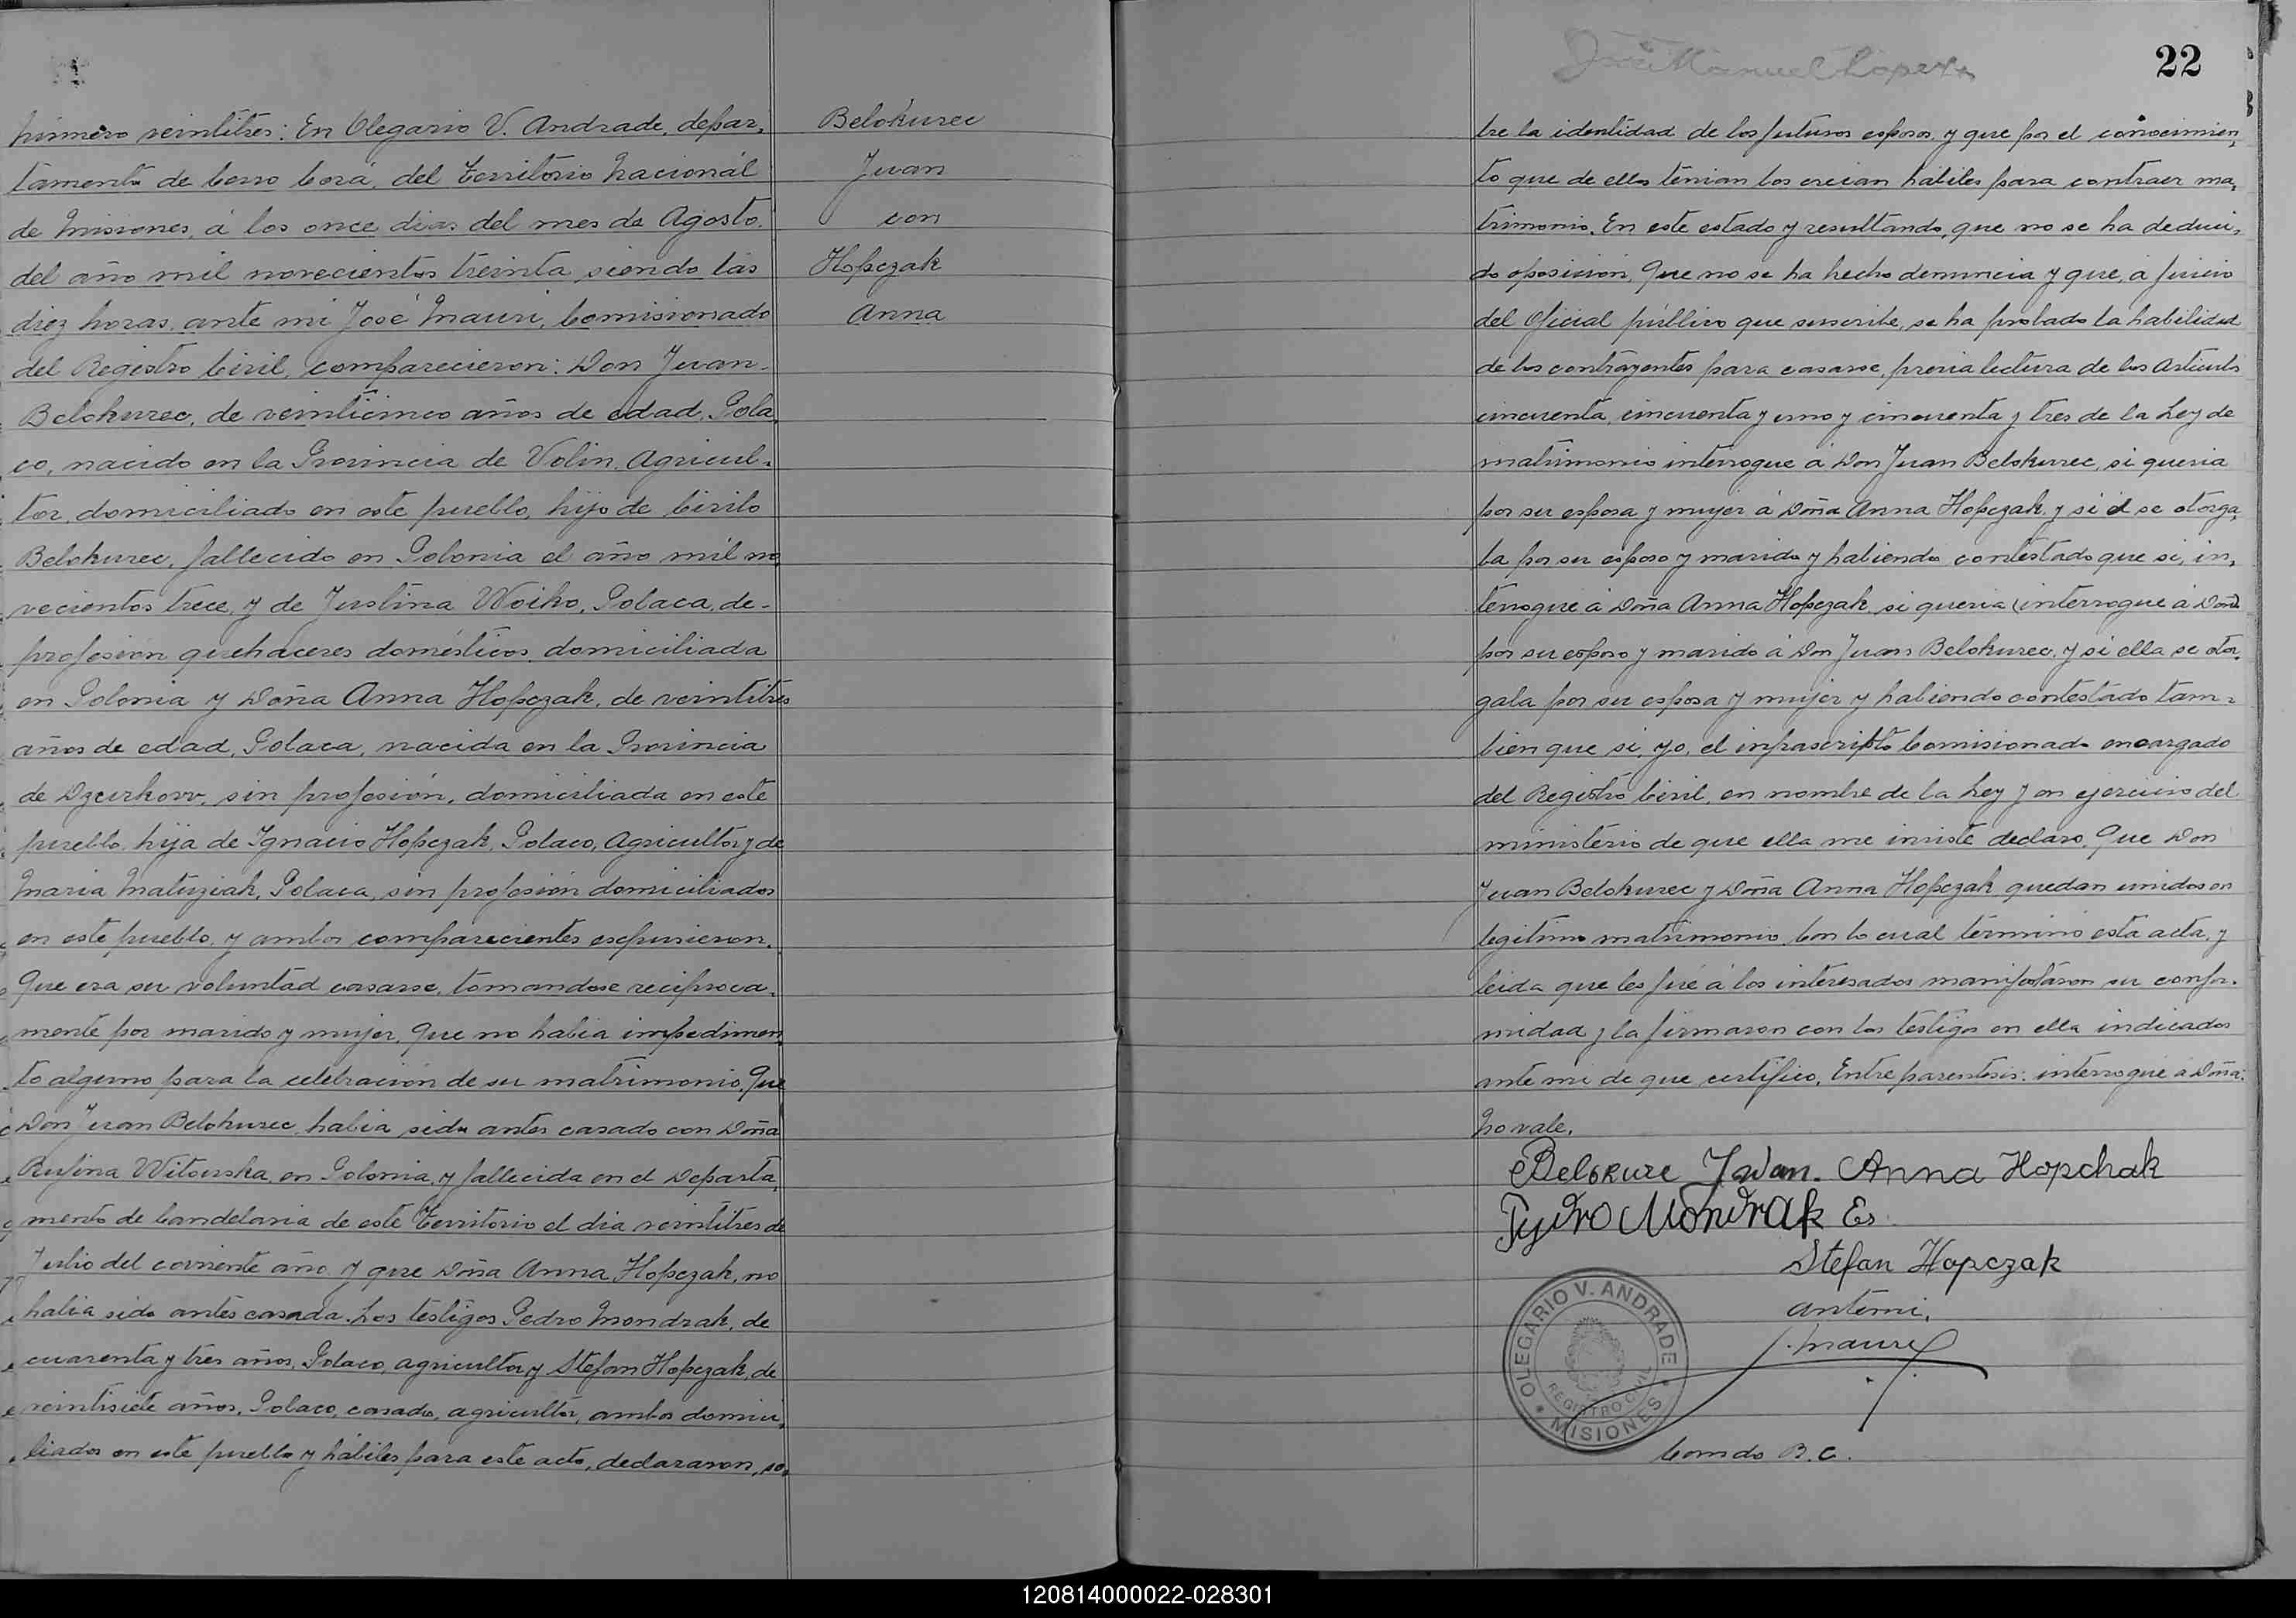 Número veintitres: En Olegario V. Andrade, depar,
tamento de Cerro Corá, del Territorio Nacional
de Misiones, á los once dias del mes de Agosto.
del año mil novecientos treinta, siendo las
diez horas, ante mi José Mauri, Comisionado
del Registro Civil, comparecieron: Don Juan.
Belokurec, de veinticinco años de edad, Pola,
co, nacido en la Provincia de Volin, Agricul-
tor, domiciliado en este pueblo, hijo de Cirilo
Belokurec, fallecido en Polonia el año mil no,
vecientos trece, y de Justina Woiko, Polaca, de-
profesión quehaceres domésticos, domiciliada
en Polonia y Doña Anna Hopczak, de veintitres
años de edad, Polaca, nacida en la Provincia
de Dzcurkow, sin profesión, domiciliada en este
pueblo, hija de Ignacio Hopczak, Polaco, Agricultor y de
Maria Matuziak, Polaca, sin profesión domiciliados
en este pueblo, y ambos comparecientes expusieron.
Que era su voluntad casarse, tomandose reciproca,
mente por marido y mujer, Que no habia impedimen,
to alguno para la celebración de su matrimonio, Que
Don Juan Belokurec, habia sido antes casado con Doña
Rufina Witowska, en Polonia, y fallecida en el Departa,
mento de Candelaria de este Territorio el dia veintitres de
Julio del corriente año y que Doña Anna Hopczak, no
habia sido antes casada. Los testigos Pedro Mondrak, de
cuarenta y tres años, Polaco, agricultor y Stefan Hopczak, de
veintisiete años, Polaco, casado, agricultor, ambos domici,
liados en este pueblo y hábiles para este acto, declararon, so,
Belokurec
Juan
con
Hopczak
Anna
José Manuel Lopez
22
bre la identidad de los futuros esposos, y que por el conocimien,
to que de ellos tenian los creian hábiles para contraer ma,
trimonio. En este estado y resultando, que no se ha deduci,
do oposición, Que no se ha hecho denuncia y que, á juicio
del Oficial público que suscribe, se ha probado la habilidad
de los contrayentes para casarse, previa lectura de los Articulos
cincuenta, cincuenta y uno y cincuenta y tres de la Ley de
matrimonio interrogue á Don Juan Belokurec, si queria
por su esposa y mujer á Doña Anna Hopczak, y si él se otorga,
ba por su esposo y marido y habiendo contestado que si, in,
terrogue á Doña Anna Hopczak, si queria (interrogue á Doña)
por su esposo y marido á Don Juan Belokurec, y si ella se otor,
gaba por su esposa y mujer y habiendo contestado tam-
bien que si, yo, el infrascripto Comisionado encargado
del Registro Civil, en nombre de la Ley y en ejercicio del
ministerio de que ella me inviste declaro, Que Don
Juan Belokurec y Doña Anna Hopczak quedan unidos en
legitimo matrimonio, Con lo cual termino esta acta, y
leida que les fué á los interesados manifestaron su confor-
midad y la firmaron con los testigos en ella indicados
ante mi de que certifico, Entre parentesis: interrogue á Doña:
No vale.
Belokure Jwan. Anna Hopchak
Pydro Mondrak Es
Stefan Hopczak
Ante mi,
J. Mauri
OLEGARIO V. ANDRADE
REGISTRO CIVIL
* MISIONES *
Comdo R. C.
120814000022-028301